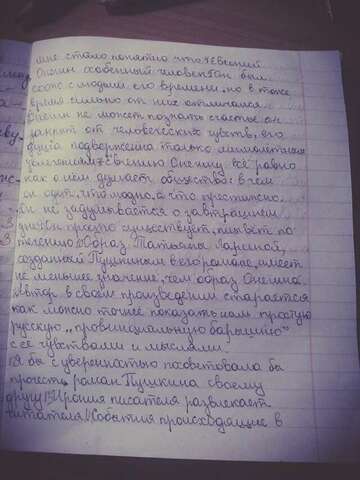 мне стало понятно что 1) Евгений
Онегин особенный человек. Он был
схож с людьми его времени, но в тоже
время сильно от них отличался.
Онегин не может познать счастье он
далёк от человеческих чувств, его
душа подвержена только мимолётным
увлечениям. Евгению Онегину всё равно
как о нём думает общество: в чём
он одет, что модно, а что престижно.
он не задумывается о завтрашнем
дне. Он просто существует, плывёт по
течению. Образ Татьяны Лариной,
созданный Пушкиным в его романе, имеет
не меньшее значение, чем образ Онегина.
Автор в своём произведении старается
как можно точнее показать нам простую
русскую „провинциальную барышню"
с её чувствами и мыслями.
Я бы с уверенностью посоветовала бы
прочесть роман Пушкина своему
другу. Ирония писателя развлекает
читателя. События происходящие в